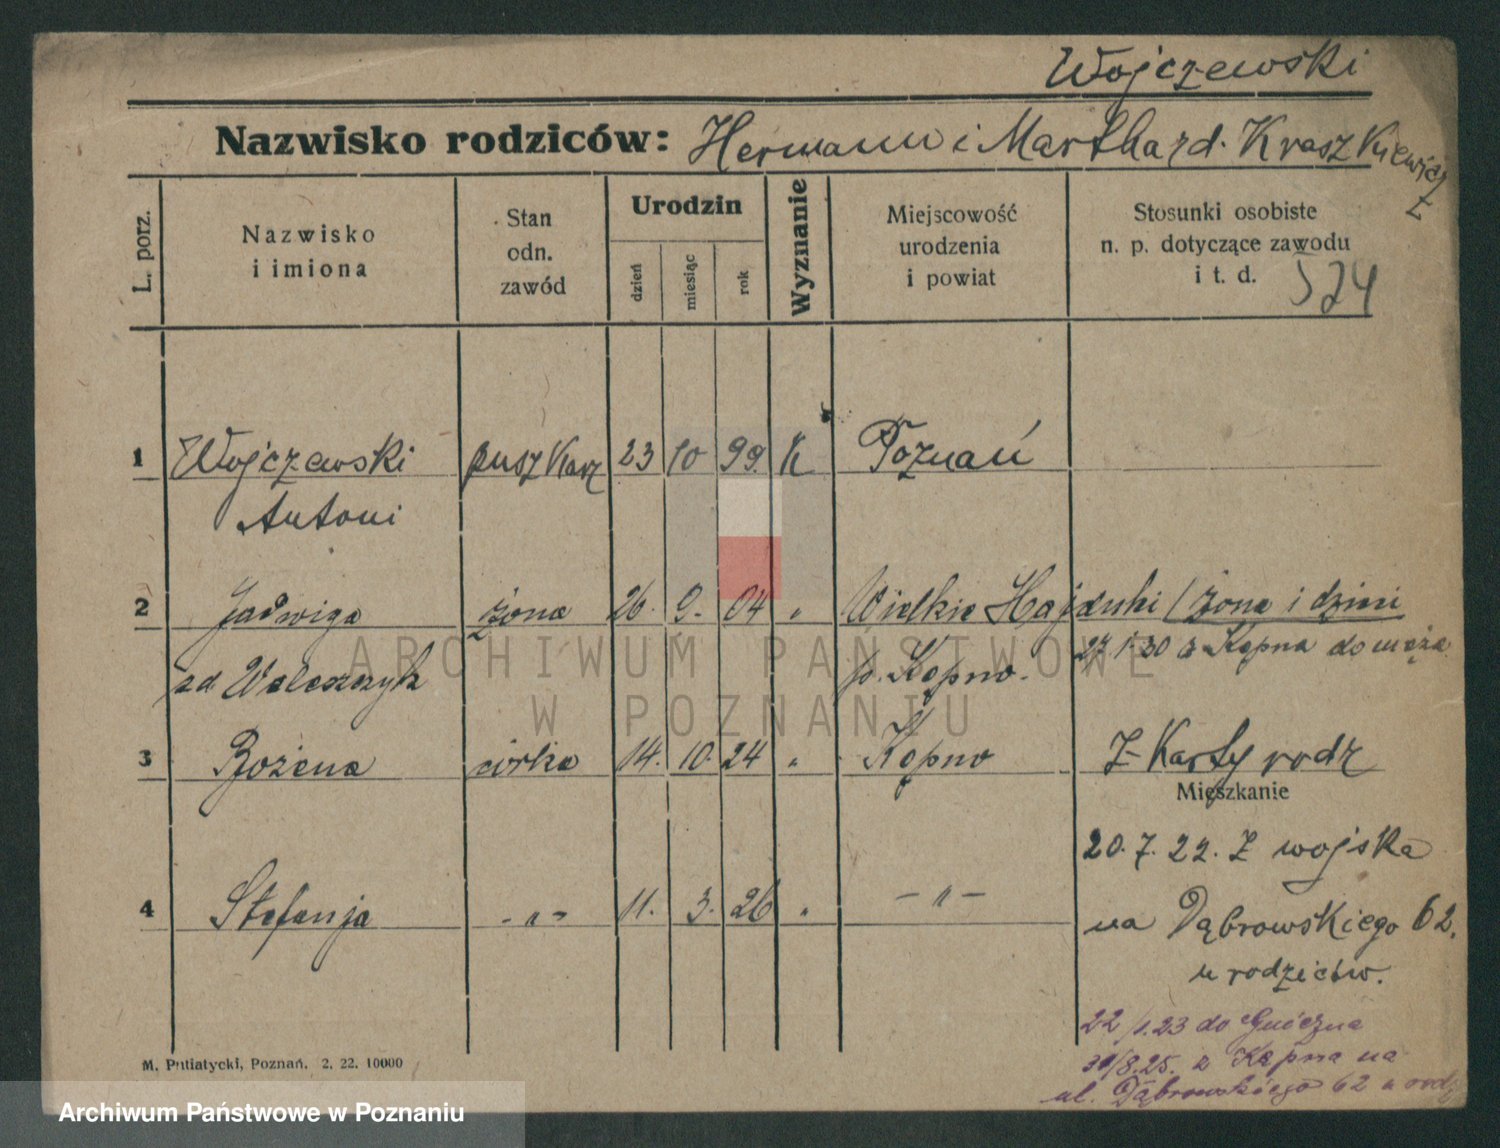 Wojczewski
Nazwisko rodziców: Hermann i Martha zd. Kraszkiewicz
L. porz.
Nazwisko i imiona
Stan odn. zawód
Urodzin
dzień
miesiąc
rok
Wyznanie
Miejscowość urodzenia i powiat
Stosunki osobiste n. p. dotyczące zawodu i t. d.
524
1 Wojczewski puszkarz 23 10 99 K Poznań
Antoni
2 Jadwiga żona 26. 9. 04 " Wielkie Hajduki / żona i dzieci
zd Waleszczyk p. Kępno. 27/1.30 z Kępna do męża
3 Bożena córka 14. 10. 24 " Kępno Z Karty rodz
Mieszkanie
20. 7. 22. Z wojska
4 Stefanja -"- 11. 3. 26 " -"- na Dąbrowskiego 62.
u rodziców.
22/1.23 do
31/8.25. z Kępna na
ul. Dąbrowskiego 62 u rodz
M. Putiatycki, Poznań. 2. 22. 10000
ARCHIWUM PAŃSTWOWE
W POZNANIU
Archiwum Państwowe w Poznaniu